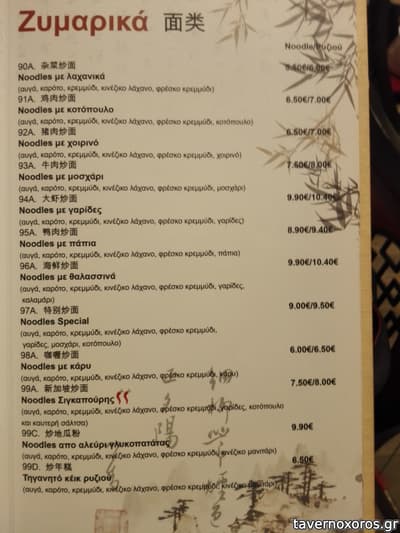 Ζυμαρικά 面类
Noodle/Ρυζιού
90A. 杂菜炒面
5.50€/6.00€
Noodles με λαχανικά
(αυγά, καρότο, κρεμμύδι, κινέζικο λάχανο, φρέσκο κρεμμύδι)
91A. 鸡肉炒面
6.50€/7.00€
Noodles με κοτόπουλο
(αυγά, καρότο, κρεμμύδι, κινέζικο λάχανο, φρέσκο κρεμμύδι, κοτόπουλο)
92A. 猪肉炒面
6.50€/7.00€
Noodles με χοιρινό
(αυγά, καρότο, κρεμμύδι, κινέζικο λάχανο, φρέσκο κρεμμύδι, χοιρινό)
93A. 牛肉炒面
7.50€/8.00€
Noodles με μοσχάρι
(αυγά, καρότο, κρεμμύδι, κινέζικο λάχανο, φρέσκο κρεμμύδι, μοσχάρι)
94A. 大虾炒面
9.90€/10.40€
Noodles με γαρίδες
(αυγά, καρότο, κρεμμύδι, κινέζικο λάχανο, φρέσκο κρεμμύδι, γαρίδες)
95A. 鸭肉炒面
8.90€/9.40€
Noodles με πάπια
(αυγά, καρότο, κρεμμύδι, κινέζικο λάχανο, φρέσκο κρεμμύδι, πάπια)
96A. 海鲜炒面
9.90€/10.40€
Noodles με θαλασσινά
(αυγά, καρότο, κρεμμύδι, κινέζικο λάχανο, φρέσκο κρεμμύδι, γαρίδες,
καλαμάρι)
97A. 特别炒面
9.00€/9.50€
Noodles Special
(αυγά, καρότο, κρεμμύδι, κινέζικο λάχανο, φρέσκο κρεμμύδι,
γαρίδες, μοσχάρι, κοτόπουλο)
98A. 咖喱炒面
6.00€/6.50€
Noodles με κάρυ
(αυγά, καρότο, κρεμμύδι, κινέζικο λάχανο, φρέσκο κρεμμύδι, κάρυ)
99A. 新加坡炒面
7.50€/8.00€
Noodles Σιγκαπούρης
(αυγά, καρότο, κρεμμύδι, κινέζικο λάχανο, φρέσκο κρεμμύδι, γαρίδες, κοτόπουλο
και καυτερή σάλτσα)
99C. 炒地瓜粉
9.90€
Noodles απο αλεύρι γλυκοπατάτας
(αυγά, καρότο, κρεμμύδι, κινέζικο λάχανο, φρέσκο κρεμμύδι, κινέζικο μανιτάρι)
99D. 炒年糕
6.50€
Τηγανητό κέικ ρυζιού
(αυγά, καρότο, κρεμμύδι, κινέζικο λάχανο, φρέσκο κρεμμύδι, μανιτάρι)
tavernoxoros.gr